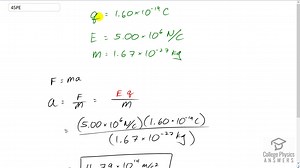 45PE
q = 1.60×10⁻¹⁹ C
E = 5.00×10⁶ N/C
m = 1.67×10⁻²⁷ kg
F = ma
a = F/m = Eq/m
= (5.00×10⁶ N/C)(1.60×10⁻¹⁹ C)/(1.67×10⁻²⁷ kg)
College Physics
ANSWERS